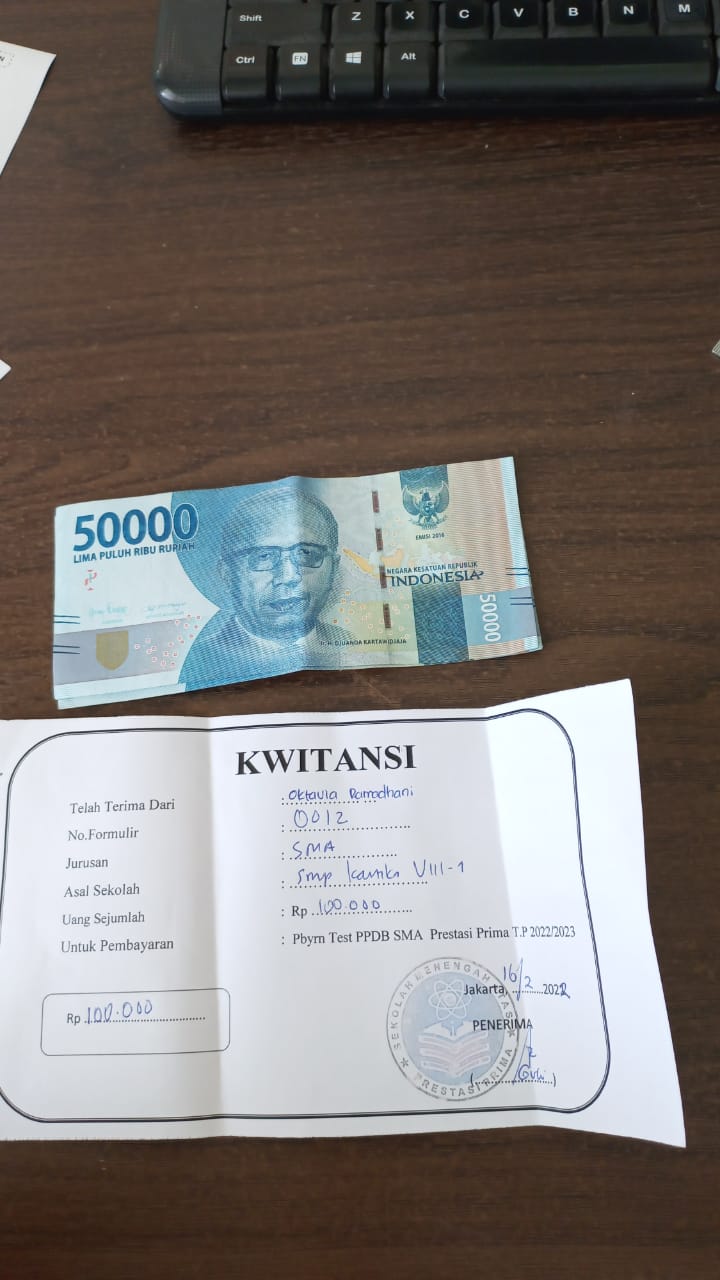 Shift Z X C V B N M
Ctrl FN Alt
50000
LIMA PULUH RIBU RUPIAH
EMISI 2016
NEGARA KESATUAN REPUBLIK
INDONESIA
50000
Ir. H. DJUANDA KARTAWIDJAJA
KWITANSI
Telah Terima Dari : Oktavia Ramadhani
No.Formulir : 0012
Jurusan : SMA
Asal Sekolah : Smp Kartika VIII-1
Uang Sejumlah : Rp 100.000
Untuk Pembayaran : Pbyrn Test PPDB SMA Prestasi Prima T.P 2022/2023
Jakarta, 16/2 2022
Rp 100.000
PENERIMA
SEKOLAH MENENGAH ATAS
PRESTASI PRIMA